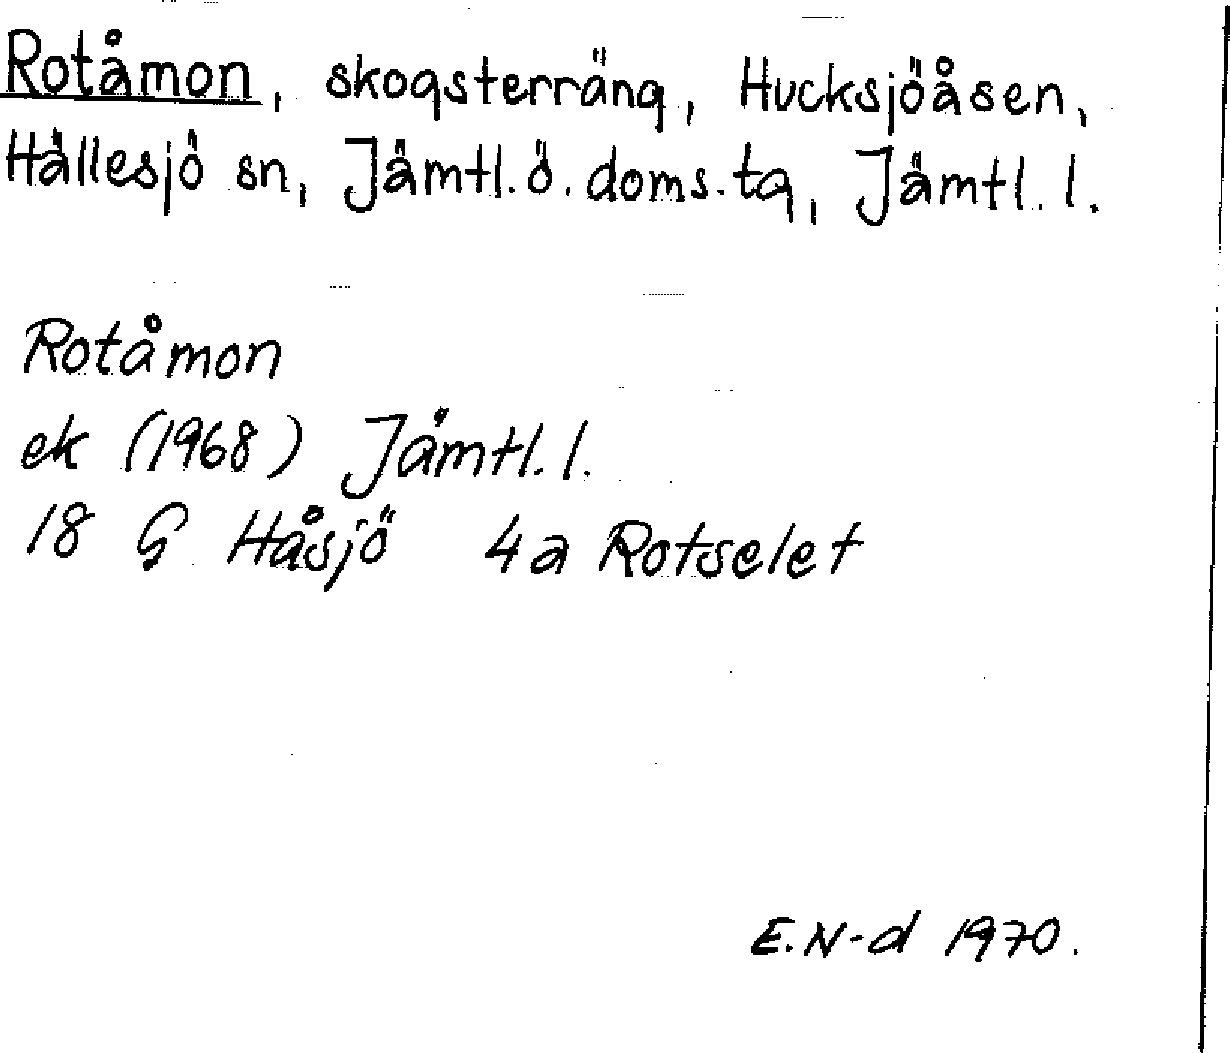 Rotåmon, skogsterräng, Hucksjöåsen,
Hällesjö sn, Jämtl. ö. doms. tg, Jämtl. l.
Rotåmon
ek (1968) Jämtl. l.
18 G Håsjö 4a Rotselet
E. N-d 1970.